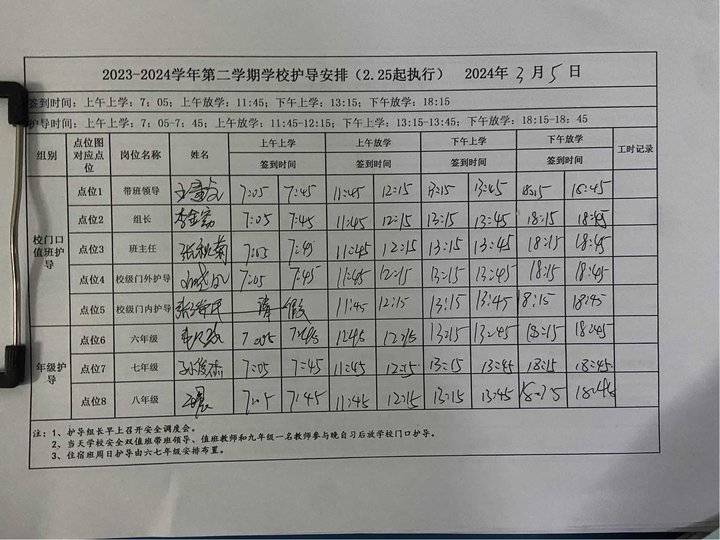 2023-2024学年第二学期学校护导安排（2.25起执行） 2024年 3 月 5 日
签到时间：上午上学：7：05；上午放学：11:45；下午上学：13:15；下午放学：18:15
护导时间：上午上学：7：05-7：45；上午放学：11:45-12:15；下午上学：13:15-13:45；下午放学：18:15-18：45
组别 点位图对应点位 岗位名称 姓名 上午上学 上午放学 下午上学 下午放学 工时记录
签到时间 签到时间 签到时间 签到时间
校门口值班护导
点位1 带班领导 7:05 7:45 11:45 12:15 13:15 13:45 18:15 18:45
点位2 组长 7:05 7:45 11:45 12:15 13:15 13:45 18:15 18:45
点位3 班主任 7:05 7:45 11:45 12:15 13:15 13:45 18:15 18:45
点位4 校级门外护导 7:05 7:45 11:45 12:15 13:15 13:45 18:15 18:45
点位5 校级门内护导 请 假 11:45 12:15 13:15 13:45 18:15 18:45
年级护导
点位6 六年级 7:05 7:45 12:15 13:15 13:45 18:15 18:45
点位7 七年级 孙俊杰 7:05 7:45 11:45 12:15 13:15 13:45 18:15 18:45
点位8 八年级 7:05 7:45 11:45 12:15 13:15 13:45 18:15 18:45
注：1、护导组长早上召开安全调度会。
2、当天学校安全双值班带班领导、值班教师和九年级一名教师参与晚自习后放学校门口护导。
3、住宿班周日护导由六七年级安排布置。